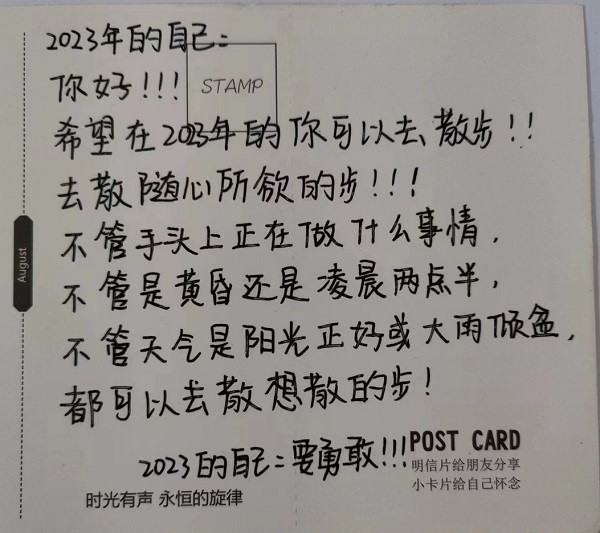 2023年的自己：
你好！！！
STAMP
希望在2023年的你可以去散步！！
去散随心所欲的步！！！
不管手头上正在做什么事情，
不管是黄昏还是凌晨两点半，
不管天气是阳光正好或大雨倾盆，
都可以去散想散的步！
August
2023的自己：要勇敢！！！
POST CARD
明信片给朋友分享
小卡片给自己怀念
时光有声 永恒的旋律